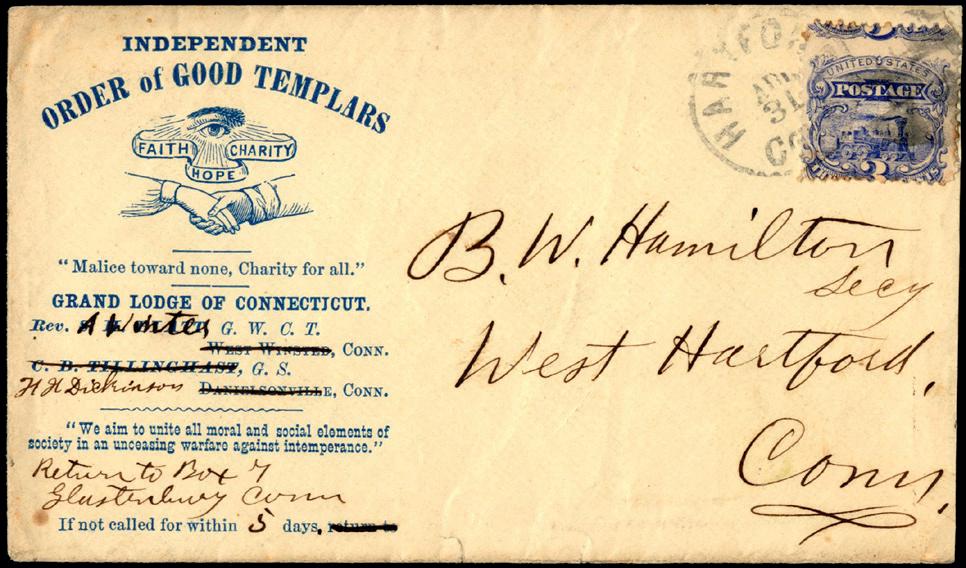 INDEPENDENT
ORDER of GOOD TEMPLARS
FAITH CHARITY
HOPE
"Malice toward none, Charity for all."
GRAND LODGE OF CONNECTICUT.
Rev. G. W. C. T.
WEST WINSTED, CONN.
C. B. TILLINGHAST, G. S.
H H Dickinson DANIELSONVILLE, CONN.
"We aim to unite all moral and social elements of
society in an unceasing warfare against intemperance."
Return to Box 7
Glastenbury Conn
If not called for within 5 days, return to
HARTFORD
31
UNITED STATES
POSTAGE
3
B. W. Hamilton
Secy
West Hartford,
Conn.